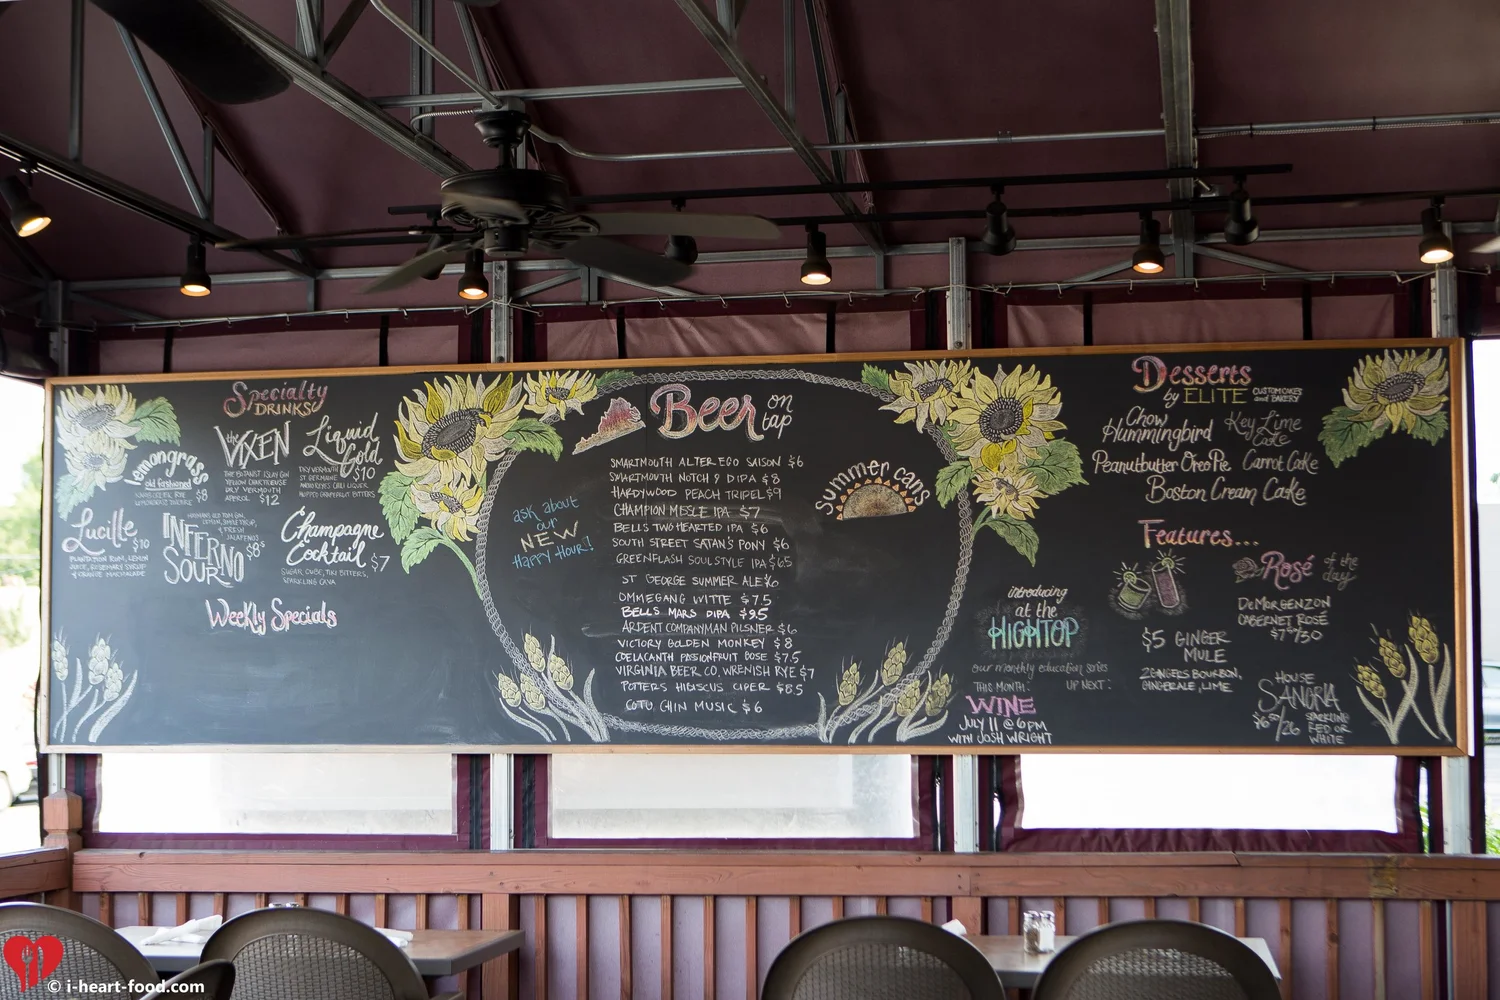 Specialty
DRINKS
the VIXEN
THE BOTANIST ISLAY GIN
YELLOW CHARTREUSE
DRY VERMOUTH
APEROL $12
Liquid
Gold
DRY VERMOUTH
ST GERMAINE $10
ANCHO REYES CHILI LIQUER
HOPPED GRAPEFRUIT BITTERS
Lemongrass
old fashioned
$8
Lucille
$10
PLANTATION RUM, LEMON
JUICE, ROSEMARY SYRUP
& ORANGE MARMALADE
OLD TOM GIN,
& FRESH
JALAPEÑOS
INFERNO
SOUR
$8
Champagne
Cocktail $7
SUGAR CUBE, TIKI BITTERS,
SPARKLING CAVA
Weekly Specials
Beer on
tap
ask about
our
NEW
Happy Hour!
SMARTMOUTH ALTER EGO SAISON $6
SMARTMOUTH NOTCH 9 DIPA $8
HARDYWOOD PEACH TRIPEL $9
CHAMPION MISSLE IPA $7
BELLS TWO HEARTED IPA $6
SOUTH STREET SATAN'S PONY $6
GREENFLASH SOUL STYLE IPA $6.5
ST GEORGE SUMMER ALE $6
OMMEGANG WITTE $7.5
BELLS MARS DIPA $9.5
ARDENT COMPANYMAN PILSNER $6
VICTORY GOLDEN MONKEY $8
COELACANTH PASSIONFRUIT GOSE $7.5
VIRGINIA BEER CO, WRENISH RYE $7
POTTERS HIBISCUS CIDER $8.5
COTU, CHIN MUSIC $6
Summer cans
Desserts
by ELITE CUSTOM CAKES
and BAKERY
Chow
Hummingbird
Key Lime
Cake
Peanutbutter Oreo Pie
Carrot Cake
Boston Cream Cake
Features...
introducing
at the
HIGHTOP
our monthly education series
THIS MONTH:
UP NEXT:
WINE
JULY 11 @ 6PM
WITH JOSH WRIGHT
$5 GINGER
MULE
BOURBON,
GINGERALE, LIME
Rosé of the
day
DeMORGENZON
CABERNET ROSÉ
HOUSE
SANGRIA
SPARKLING
RED OR
WHITE
© i-heart-food.com